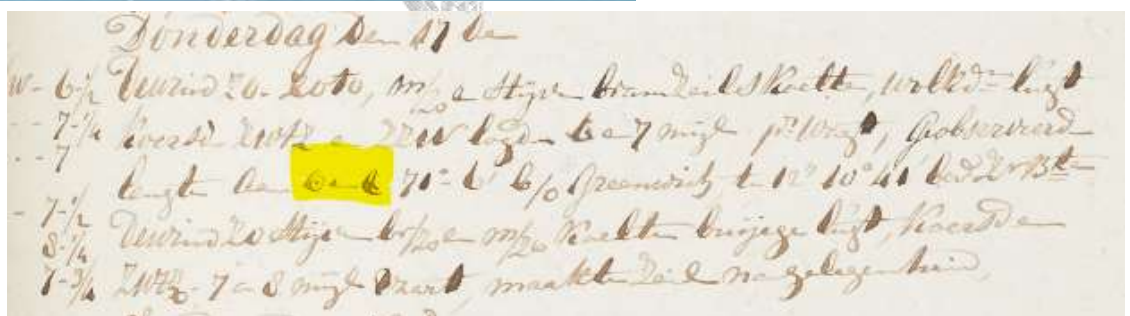 Donderdag den 17 de
W - 6-½ de wind Z.O. Zoto, m/z a stijve bramzeilskoelte, wolkde lugt
- - 7-¼ koerst ZWtZ en ZZW logde 6 a 7 mijl pr. wagt, geobserveerd
- - 7 lengte 71° 6' b/o Greenwich
- 7-½ de wind ZO stijve koelte buijige lugt, koersde
8-¼
7-¾ ZWtZ 7 a 8 mijl vaart, maakte zeil na gelegenheid